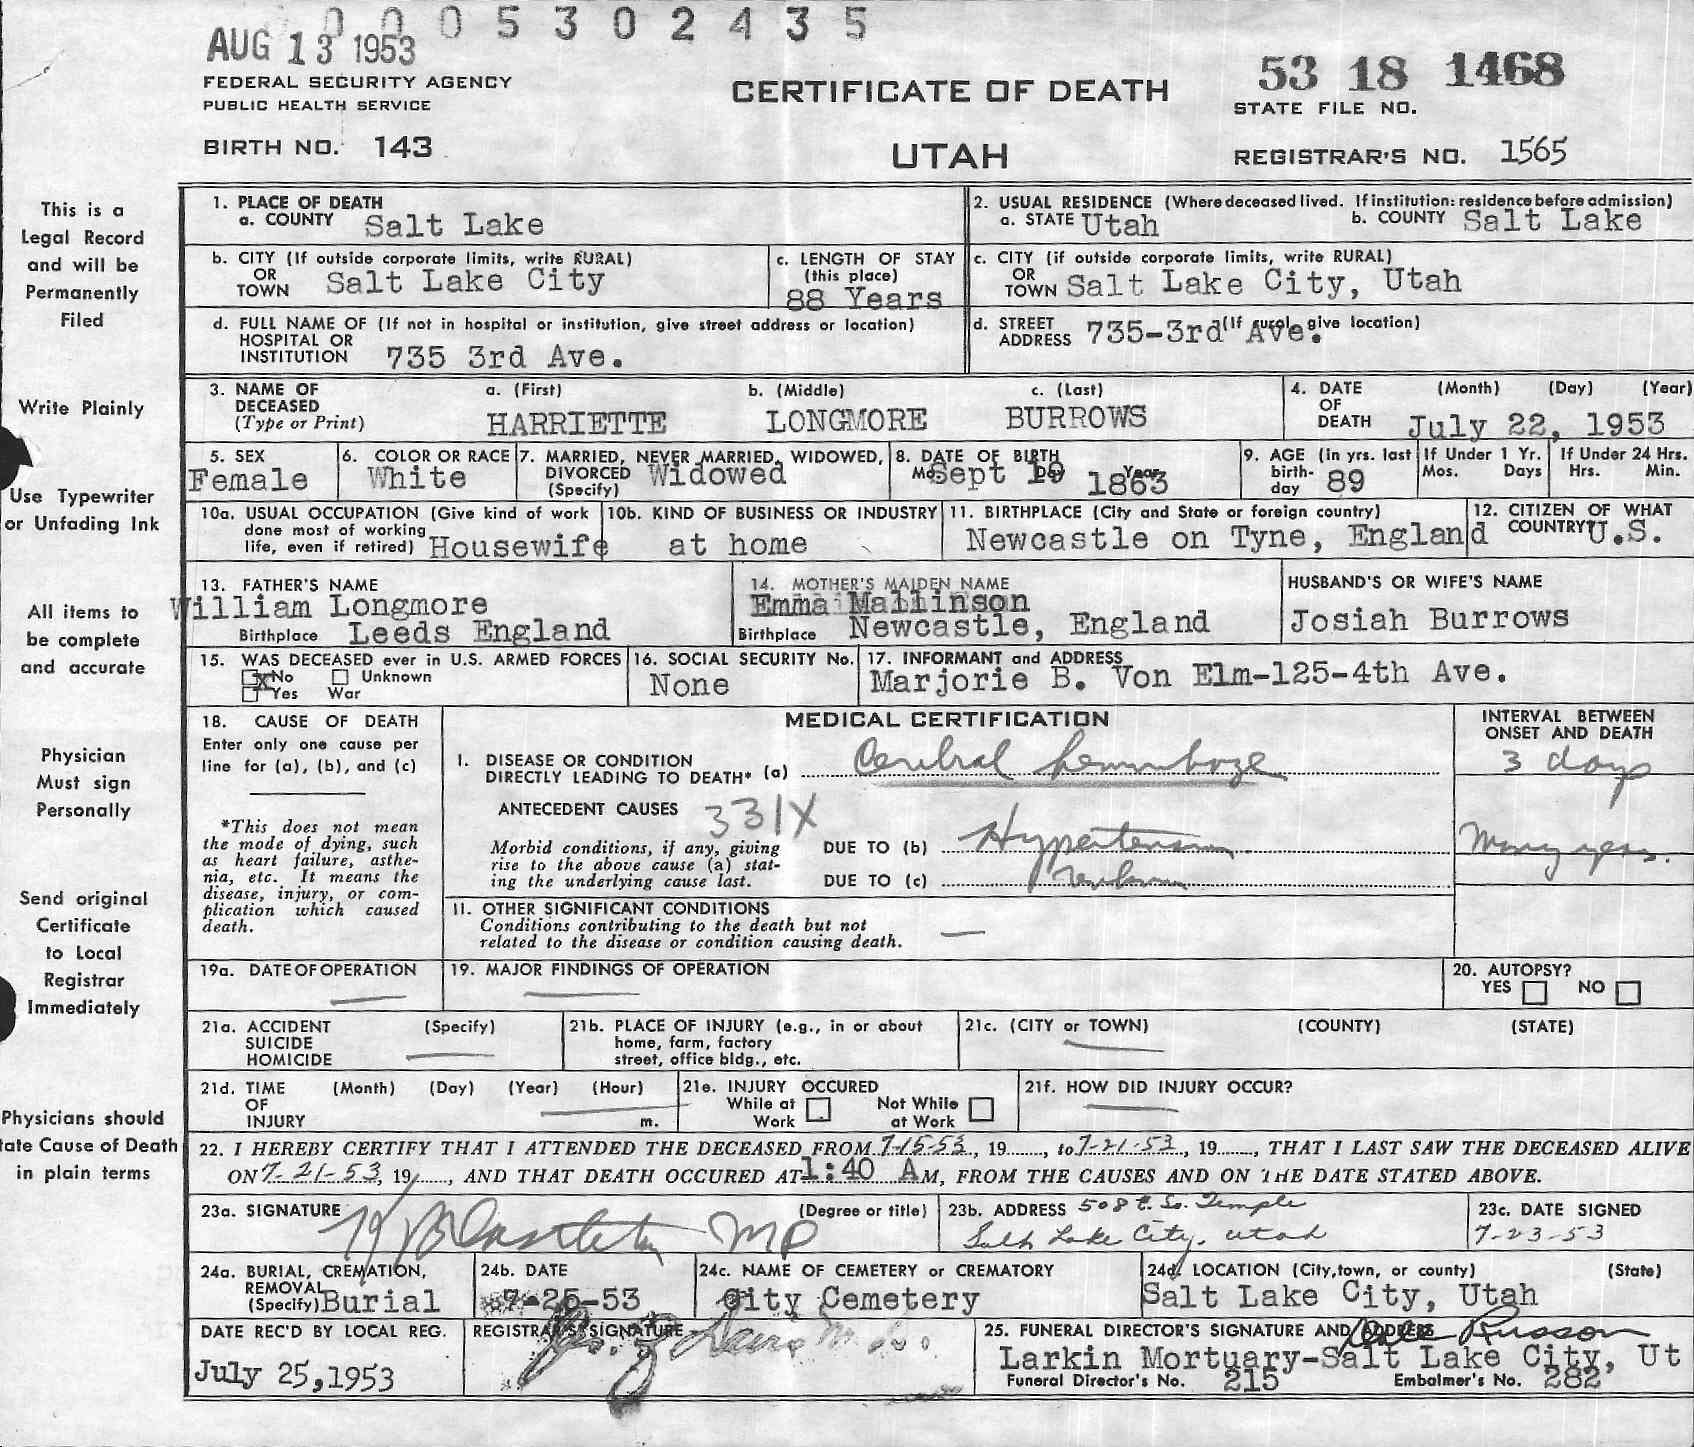 0 0 0 5 3 0 2 4 3 5
AUG 13 1953
FEDERAL SECURITY AGENCY
PUBLIC HEALTH SERVICE
BIRTH NO. 143
CERTIFICATE OF DEATH
UTAH
53 18 1468
STATE FILE NO.
REGISTRAR'S NO. 1565
This is a
Legal Record
and will be
Permanently
Filed
Write Plainly
Use Typewriter
or Unfading Ink
All items to
be complete
and accurate
Physician
Must sign
Personally
Send original
Certificate
to Local
Registrar
Immediately
Physicians should
tate Cause of Death
in plain terms
1. PLACE OF DEATH
a. COUNTY Salt Lake
2. USUAL RESIDENCE (Where deceased lived. If institution: residence before admission)
a. STATE Utah b. COUNTY Salt Lake
b. CITY (If outside corporate limits, write RURAL)
OR
TOWN Salt Lake City
c. LENGTH OF STAY
(this place)
88 Years
c. CITY (if outside corporate limits, write RURAL)
OR
TOWN Salt Lake City, Utah
d. FULL NAME OF (If not in hospital or institution, give street address or location)
HOSPITAL OR
INSTITUTION 735 3rd Ave.
d. STREET (If rural, give location)
ADDRESS 735-3rd Ave.
3. NAME OF
DECEASED
(Type or Print)
a. (First) b. (Middle) c. (Last)
HARRIETTE LONGMORE BURROWS
4. DATE (Month) (Day) (Year)
OF
DEATH July 22, 1953
5. SEX
Female
6. COLOR OR RACE
White
7. MARRIED, NEVER MARRIED, WIDOWED,
DIVORCED Widowed
(Specify)
8. DATE OF BIRTH
Sept 1863
9. AGE (in yrs. last
birth-
day 89
If Under 1 Yr.
Mos. Days
If Under 24 Hrs.
Hrs. Min.
10a. USUAL OCCUPATION (Give kind of work
done most of working
life, even if retired) Housewife
10b. KIND OF BUSINESS OR INDUSTRY
at home
11. BIRTHPLACE (City and State or foreign country)
Newcastle on Tyne, England
12. CITIZEN OF WHAT
COUNTRY U.S.
13. FATHER'S NAME
William Longmore
Birthplace Leeds England
14. MOTHER'S MAIDEN NAME
Emma Mallinson
Birthplace Newcastle, England
HUSBAND'S OR WIFE'S NAME
Josiah Burrows
15. WAS DECEASED ever in U.S. ARMED FORCES
X No Unknown
Yes War
16. SOCIAL SECURITY No.
None
17. INFORMANT and ADDRESS
Marjorie B. Von Elm-125-4th Ave.
18. CAUSE OF DEATH
Enter only one cause per
line for (a), (b), and (c)
*This does not mean
the mode of dying, such
as heart failure, asthe-
nia, etc. It means the
disease, injury, or com-
plication which caused
death.
MEDICAL CERTIFICATION
INTERVAL BETWEEN
ONSET AND DEATH
I. DISEASE OR CONDITION
DIRECTLY LEADING TO DEATH* (a) Cerebral hemorrhage 3 days
ANTECEDENT CAUSES 331X
Morbid conditions, if any, giving
rise to the above cause (a) stat-
ing the underlying cause last.
DUE TO (b) Hypertension Many years.
DUE TO (c)
11. OTHER SIGNIFICANT CONDITIONS
Conditions contributing to the death but not
related to the disease or condition causing death. —
19a. DATE OF OPERATION —
19. MAJOR FINDINGS OF OPERATION —
20. AUTOPSY?
YES NO
21a. ACCIDENT (Specify)
SUICIDE
HOMICIDE —
21b. PLACE OF INJURY (e.g., in or about
home, farm, factory
street, office bldg., etc.
21c. (CITY or TOWN) (COUNTY) (STATE)
21d. TIME (Month) (Day) (Year) (Hour)
OF
INJURY m.
21e. INJURY OCCURED
While at Not While
Work at Work
21f. HOW DID INJURY OCCUR?
22. I HEREBY CERTIFY THAT I ATTENDED THE DECEASED FROM 7-15-53, 19......, to 7-21-53, 19......, THAT I LAST SAW THE DECEASED ALIVE
ON 7-21-53, 19......, AND THAT DEATH OCCURED AT 1:40 AM, FROM THE CAUSES AND ON THE DATE STATED ABOVE.
23a. SIGNATURE (Degree or title)
MD
23b. ADDRESS 508 E. So. Temple
Salt Lake City, Utah
23c. DATE SIGNED
7-23-53
24a. BURIAL, CREMATION,
REMOVAL
(Specify) Burial
24b. DATE
7-25-53
24c. NAME OF CEMETERY or CREMATORY
City Cemetery
24d. LOCATION (City, town, or county) (State)
Salt Lake City, Utah
DATE REC'D BY LOCAL REG.
July 25,1953
REGISTRAR'S SIGNATURE
25. FUNERAL DIRECTOR'S SIGNATURE AND ADDRESS
Larkin Mortuary-Salt Lake City, Ut
Funeral Director's No. 215 Embalmer's No. 282